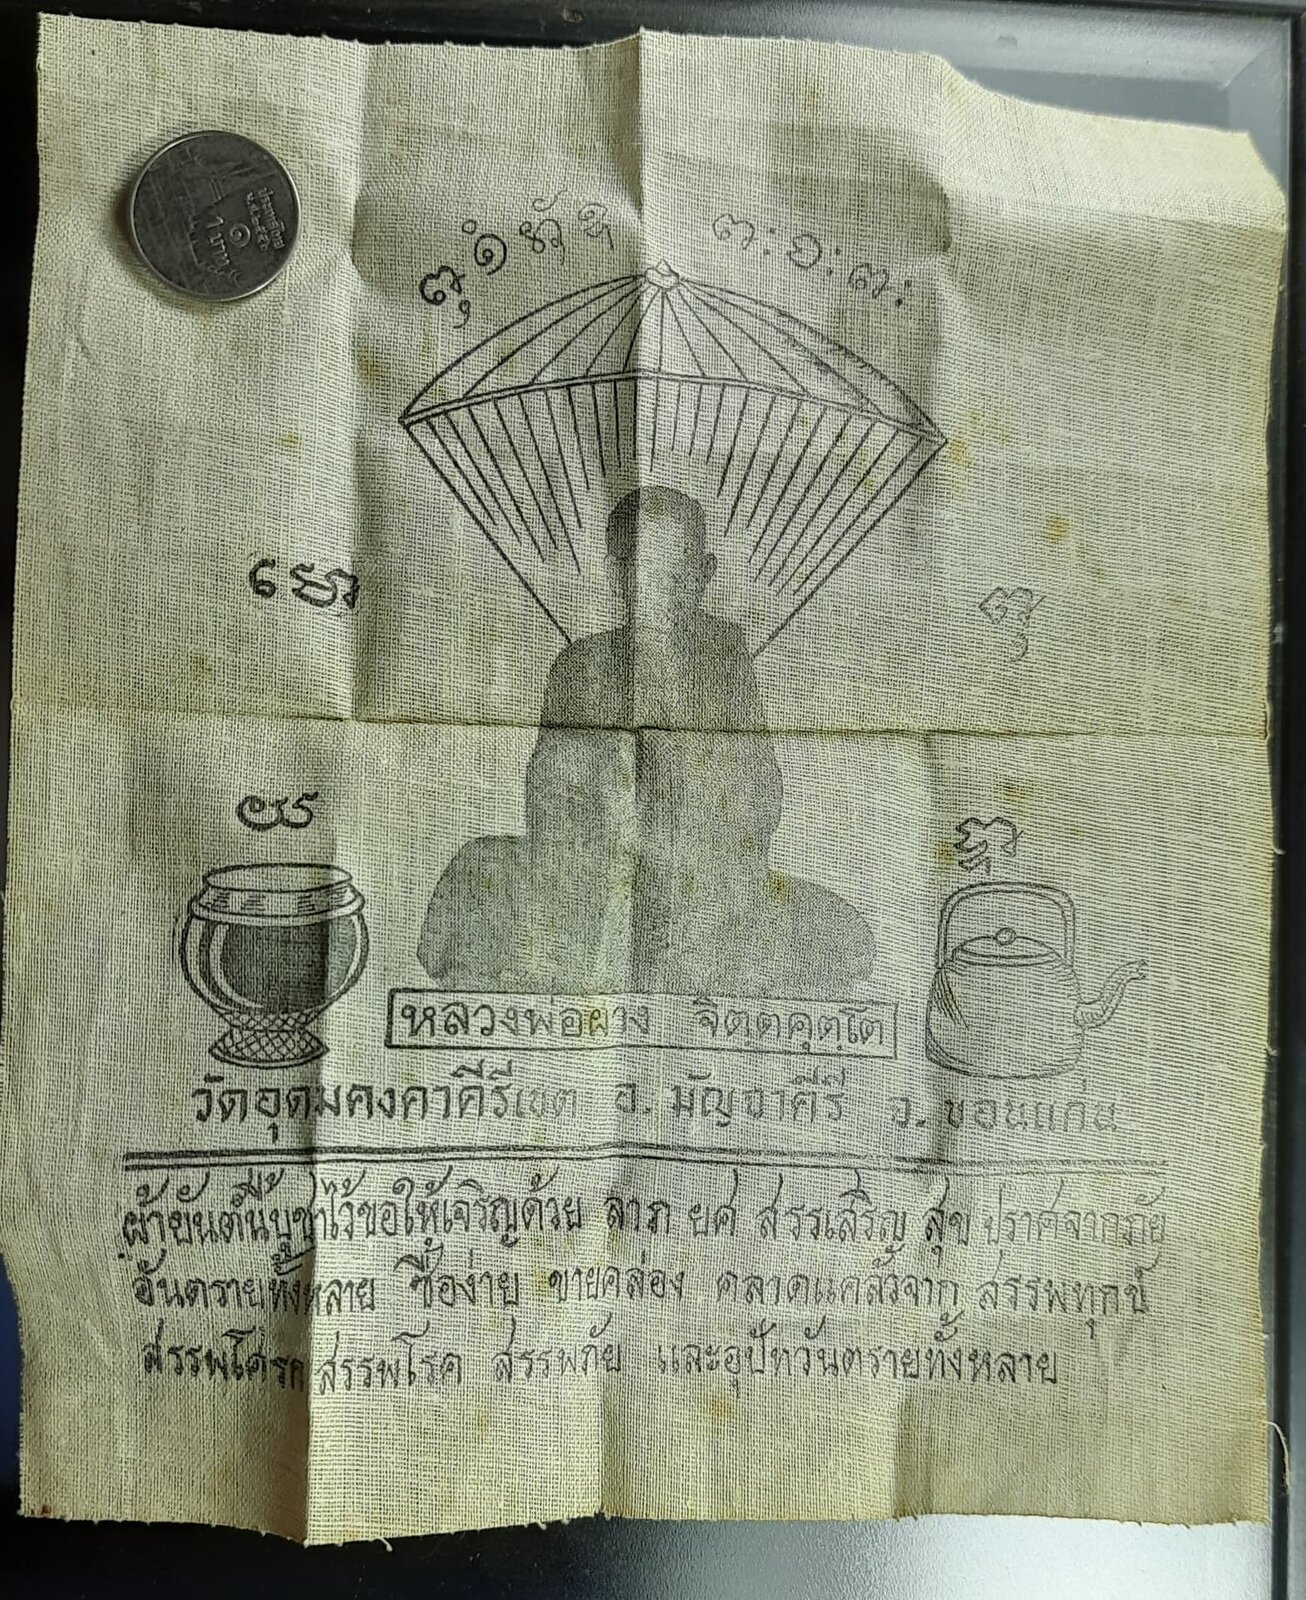 ๑
1 บาท
หลวงพ่อผาง จิตฺตคุตฺโต
วัดอุดมคงคาคีรีเขต อ. มัญจาคีรี จ. ขอนแก่น
ผ้ายันต์นี้บูชาไว้ขอให้เจริญด้วย ลาภ ยศ สรรเสริญ สุข ปราศจากภัย
อันตรายทั้งหลาย ซื้อง่าย ขายคล่อง คลาดแคล้วจาก สรรพทุกข์
สรรพโศรก สรรพโรค สรรพภัย และอุปัทวันตรายทั้งหลาย